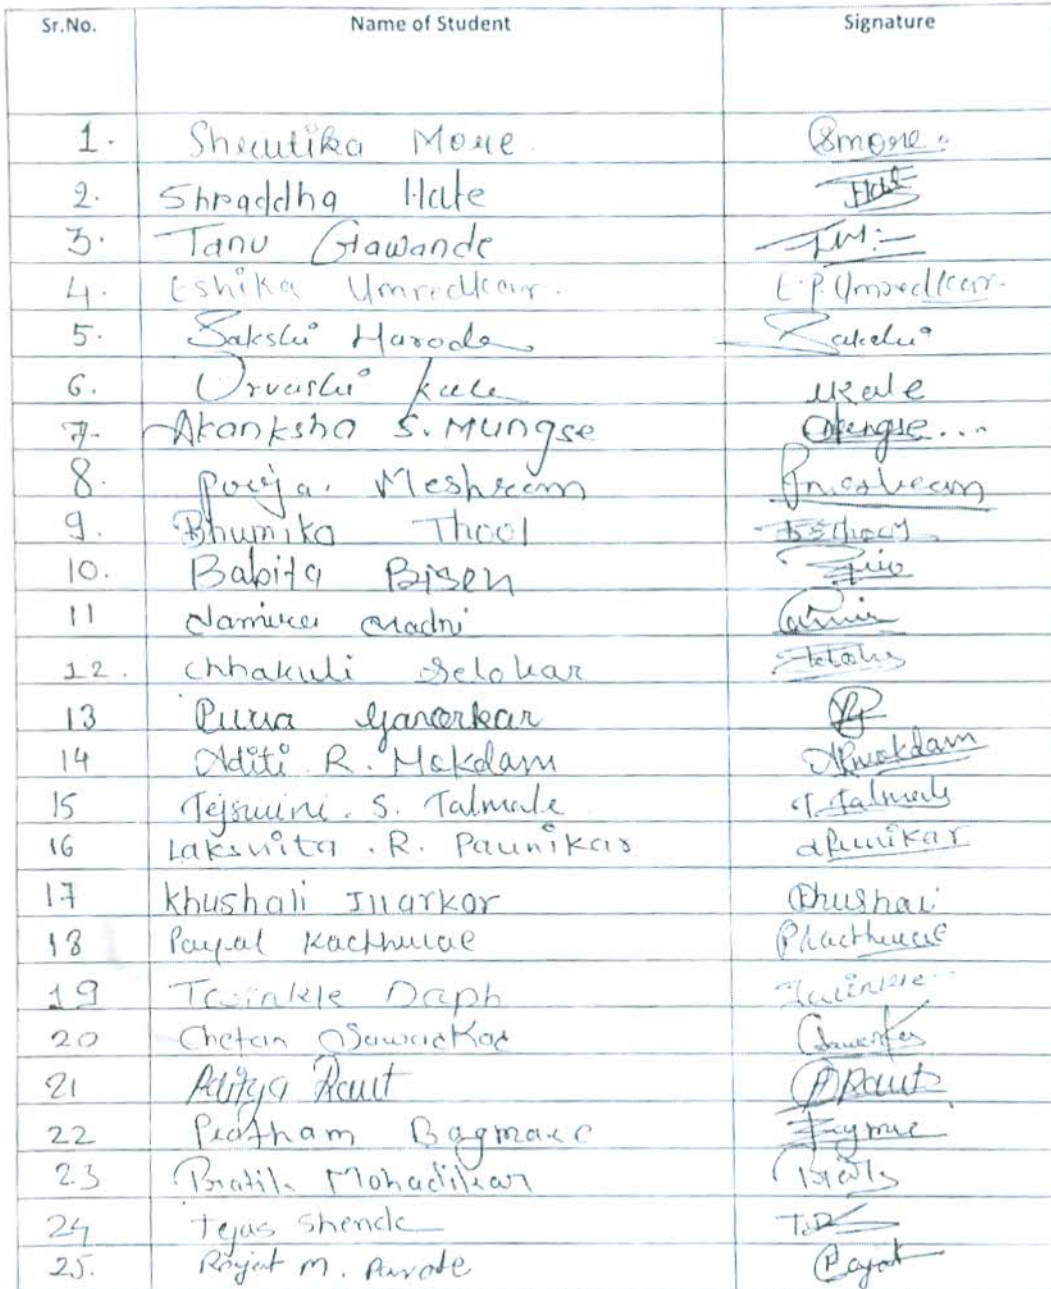 Sr.No. Name of Student Signature
1. Shrutika More. Smore.
2. Shraddha Hate Hate
3. Tanu Gawande
4. Eshika Umredkar. E.P. Umredkar.
5. Sakshi Harode Sakshi
6. Urvashi Kale UKale
7. Akanksha S. Mungse
8. Pooja. Meshram Pmeshram
9. Bhumika Thool
10. Babita Bisen
11 Namira
12. Chhakuli Selokar
13 Purva Yanorkar
14 Aditi R. Mokdam ARMokdam
15 Tejswini. S. Talmale T. Talmale
16 Lakshita . R. Paunikar
17 Khushali Khushali
18 Paypal
19 Twinkle Daph Twinkle
20 Chetan Sawarkar
21 Aditya Raut A Raut
22 Pratham Bagmare
23 Pratik Mohadikar
24 Tejas Shende
25. Rajat M. Rajat